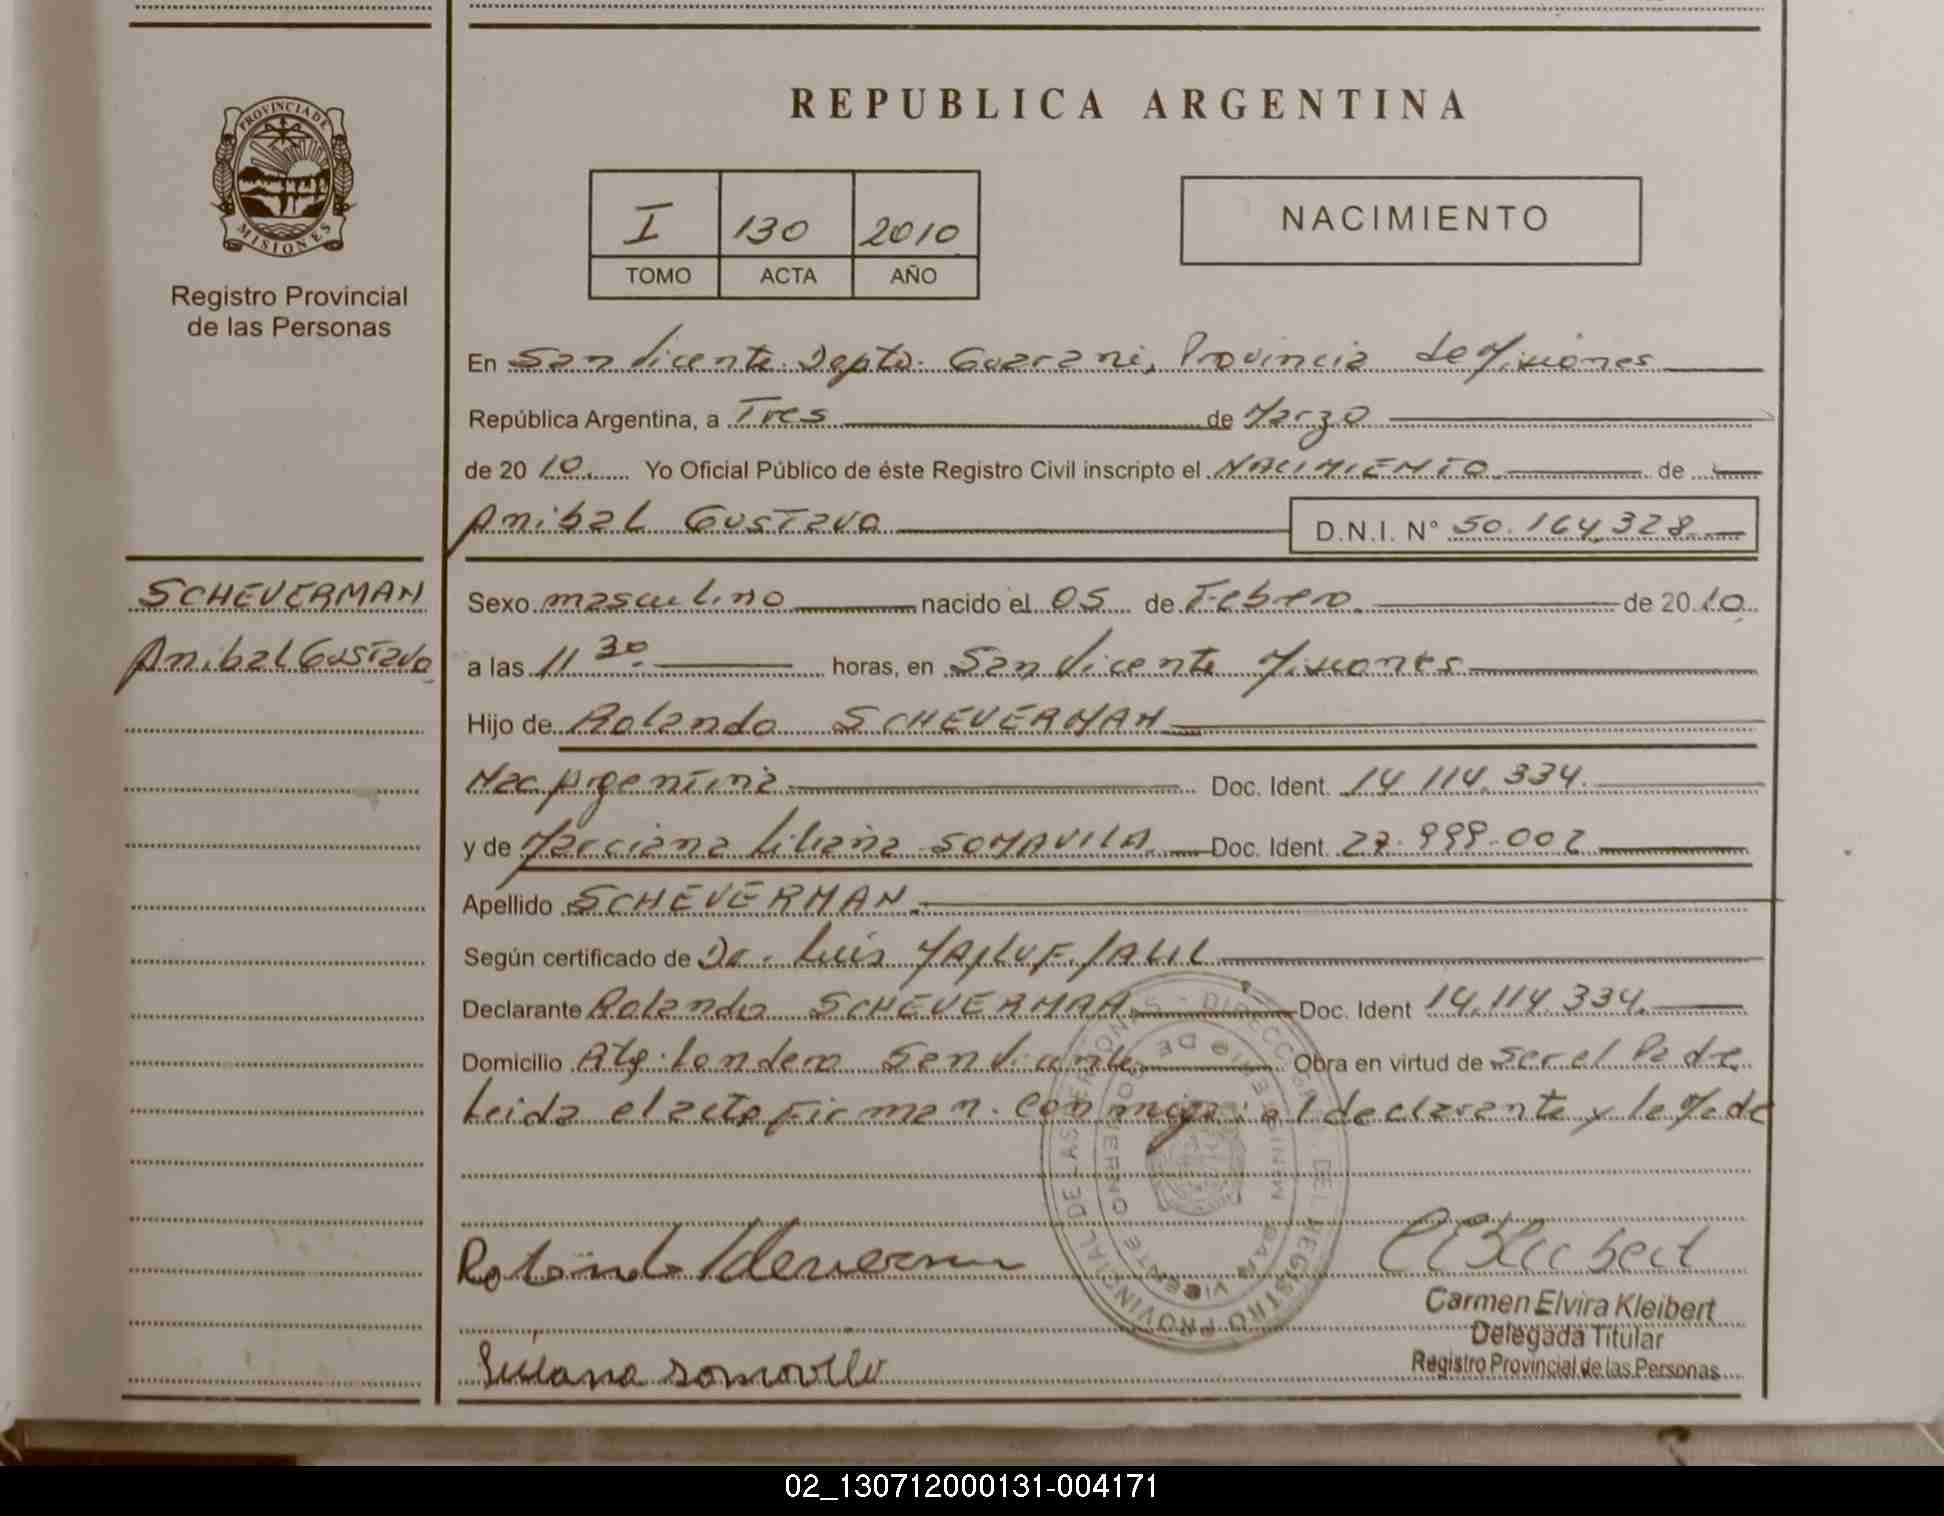 REPUBLICA ARGENTINA
PROVINCIA DE
MISIONES
Registro Provincial
de las Personas
I 130 2010
TOMO ACTA AÑO
NACIMIENTO
En San Vicente Depto. Guarani, Provincia de Misiones
República Argentina, a Tres de Marzo
de 20 10. Yo Oficial Público de éste Registro Civil inscripto el NACIMIENTO de
Anibal Gustavo D.N.I. N° 50.164.328
SCHEVERMAN
Anibal Gustavo
Sexo masculino nacido el 05 de Febrero de 20 10
a las 11 30 horas, en San Vicente Misiones
Hijo de Rolando SCHEVERMAN
Nac Argentina Doc. Ident. 14.114.334.
y de Marciana Liliana SOMAVILA Doc. Ident. 27.999.002
Apellido SCHEVERMAN.
Según certificado de Dr. Luis
Declarante Rolando SCHEVERMAN Doc. Ident 14.114.334.
Domicilio Londero San Vicente Obra en virtud de ser el Padre
Leida el acta Firman conmigo: el declarante y la Made
DIRECCION DEL REGISTRO PROVINCIAL DE LAS PERSONAS
MINISTERIO DE GOBIERNO
SAN VICENTE
Rolando
Liliana
Carmen Elvira Kleibert
Delegada Titular
Registro Provincial de las Personas
02_130712000131-004171